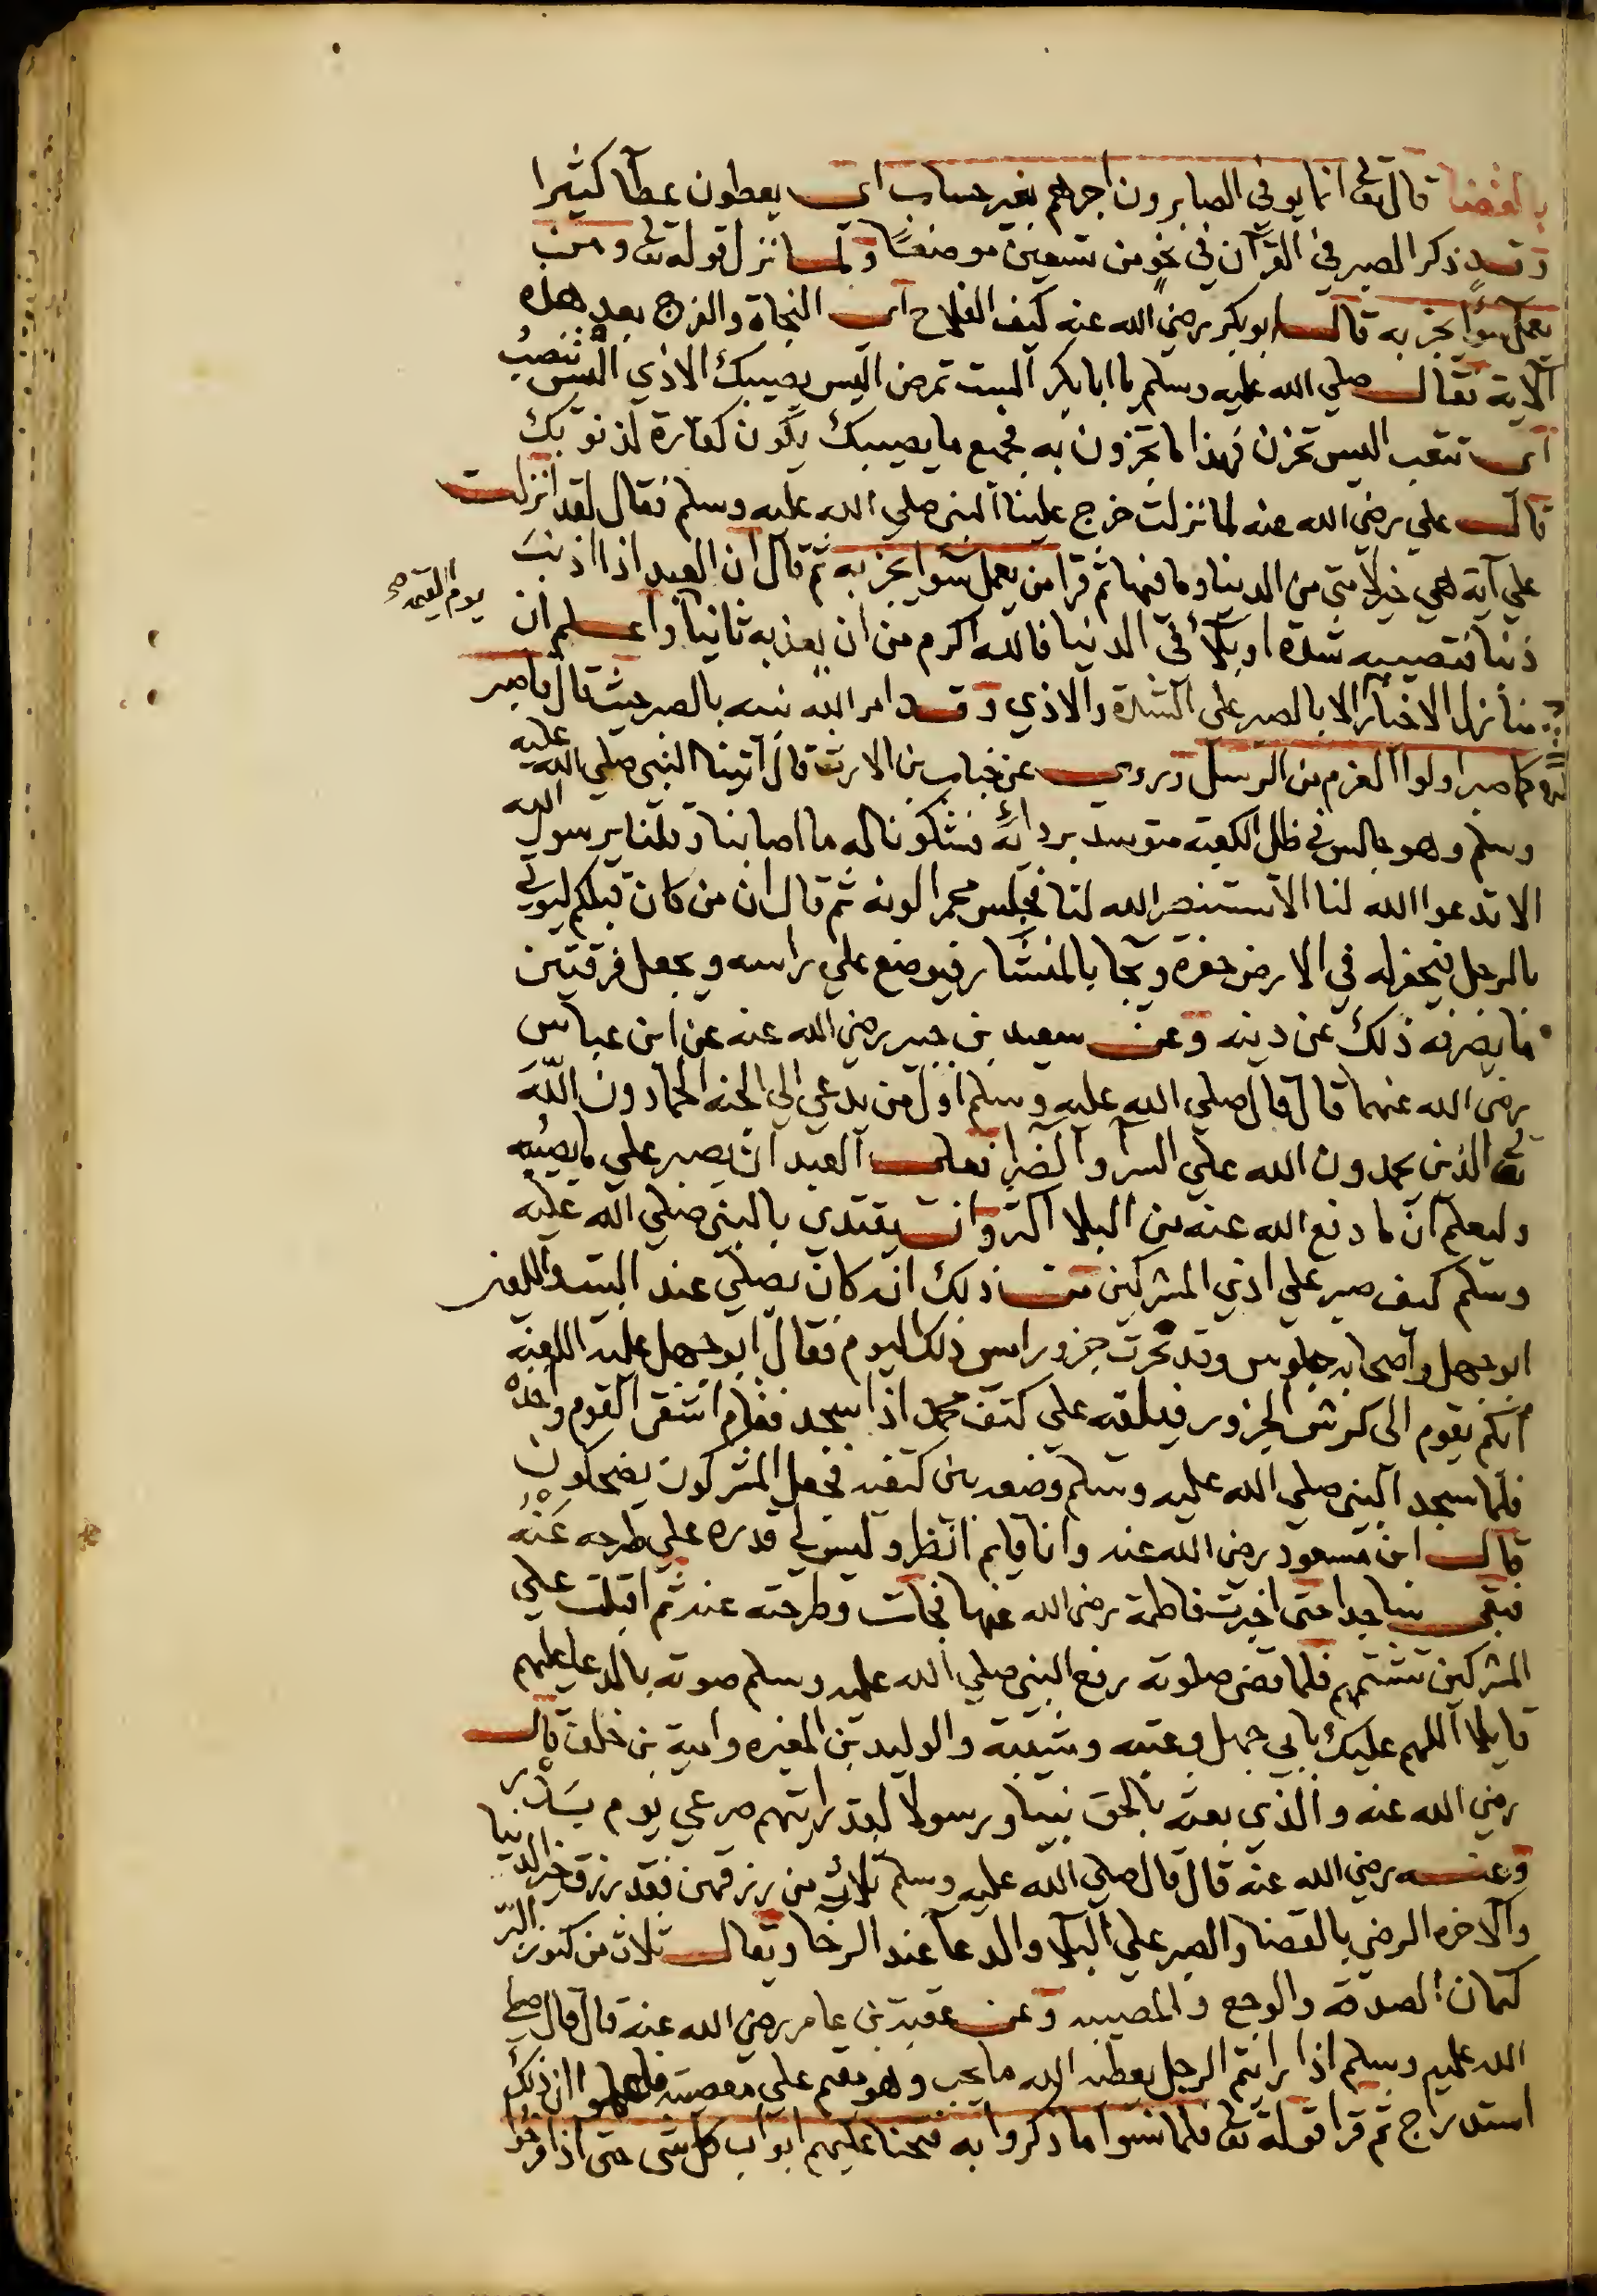 بالقضا قال تعالى انما يوفي الصابرون اجرهم بغير حساب اي يعطون عطآ كثيرا
وقد ذكر الصبر في القرآن في نحو من تسعين موضعًا ولما نزل قوله تعالى ومن
يعمل سوأ يجز به قال ابو بكر رضي الله عنه كيف الفلاح اي النجاة والفرح بعد هذه
الآية فقال صلي الله عليه وسلم يا ابا بكر الست تمرض اليس يصيبك الاذي اليس تنصب
اي تتعب اليس تحزن فهذا ما تجزون به فجميع ما يصيبك يكون كفارة لذنوبك
قال علي رضي الله عنه لما نزلت خرج علينا النبي صلي الله عليه وسلم فقال لقد انزلت
علي آية هي خير لامتي من الدنيا وما فيها ثم قرا من يعمل سوا يجز به ثم قال ان العبد اذا اذنب
ذنبا فتصيبه شدة او بلآ في الدنيا فالله اكرم من ان يعذبه ثانيا واعلم ان
يوم القيمة صح
منازل الاخيار الا بالصبر علي الشدة والاذي وقد امر الله نبيه بالصبر حيث قال فاصبر
كما صبر اولوا العزم من الرسل وروي عن خباب بن الارت قال اتينا النبي صلي الله عليه
وسلم وهو جالس في ظل الكعبة متوسد بردائه فشكونا له ما اصابنا وقلنا يرسول الله
الا تدعوا الله لنا الا تستنصر الله لنا فجلس محمرا لونه ثم قال ان من كان قبلكم ليوتي
بالرجل فيحفر له في الارض حفرة ويجآ بالمنشار فيوضع علي راسه ويجعل فرقتين
ما يصرفه ذلك عن دينه وعن سعيد بن جبير رضي الله عنه عن ابن عباس
رضي الله عنهما قال قال صلي الله عليه وسلم اول من يدعي الي الجنة الحمادون الله
تعالى الذين يحمدون الله علي السرآ والضرا فعلي العبد ان يصبر علي ما يصيبه
وليعلم ان ما دفع الله عنه من البلا اكثر وان يقتدي بالنبي صلي الله عليه
وسلم كيف صبر علي اذي المشركين من ذلك انه كان يصلي عند البيت واللعين
ابو جهل واصحابه جلوس وقد نحرت جزور امس ذلك اليوم فقال ابو جهل عليه اللعنة
ايكم يقوم الي كرش الجزور فيلقه علي كتف محمد اذا سجد فقام اشقي القوم واخذه
فلما سجد النبي صلي الله عليه وسلم وضعه بين كتفيه فجعل المشركون يضحكون
قال ابن مسعود رضي الله عنه وانا قايم انظر وليس لي قدره علي طرحه عنه
فبقي ساجدا حتي اخبرت فاطمة رضي الله عنها فجات وطرحته عنه ثم اقبلت علي
المشركين تشتمهم فلما قضي صلوته رفع النبي صلي الله عليه وسلم صوته بالدعا عليهم
قايلا اللهم عليك بابي جهل وعتبه وشيبة والوليد بن المغيره وامية بن خلف قال
رضي الله عنه والذي بعثه بالحق نبيا ورسولا لقد رايتهم صرعي يوم بدر
وعنه رضي الله عنه قال قال صلي الله عليه وسلم ثلاث من رزقهن فقد رزق خير الدنيا
والاخره الرضي بالقضا والصبر علي البلآ والدعآ عند الرخا ويقال ثلاث من كنوز البر
كتمان الصدقة والوجع والمصيبه وعن عقبة بن عامر رضي الله عنه قال قال صلي
الله عليه وسلم اذا رايتم الرجل يعطيه الله ما يحب وهو مقيم علي معصيته فاعلموا ان ذلك
استدراج ثم قرا قوله تعالى فلما نسوا ما ذكروا به فتحنا عليهم ابواب كل شي حتي اذا فرحوا